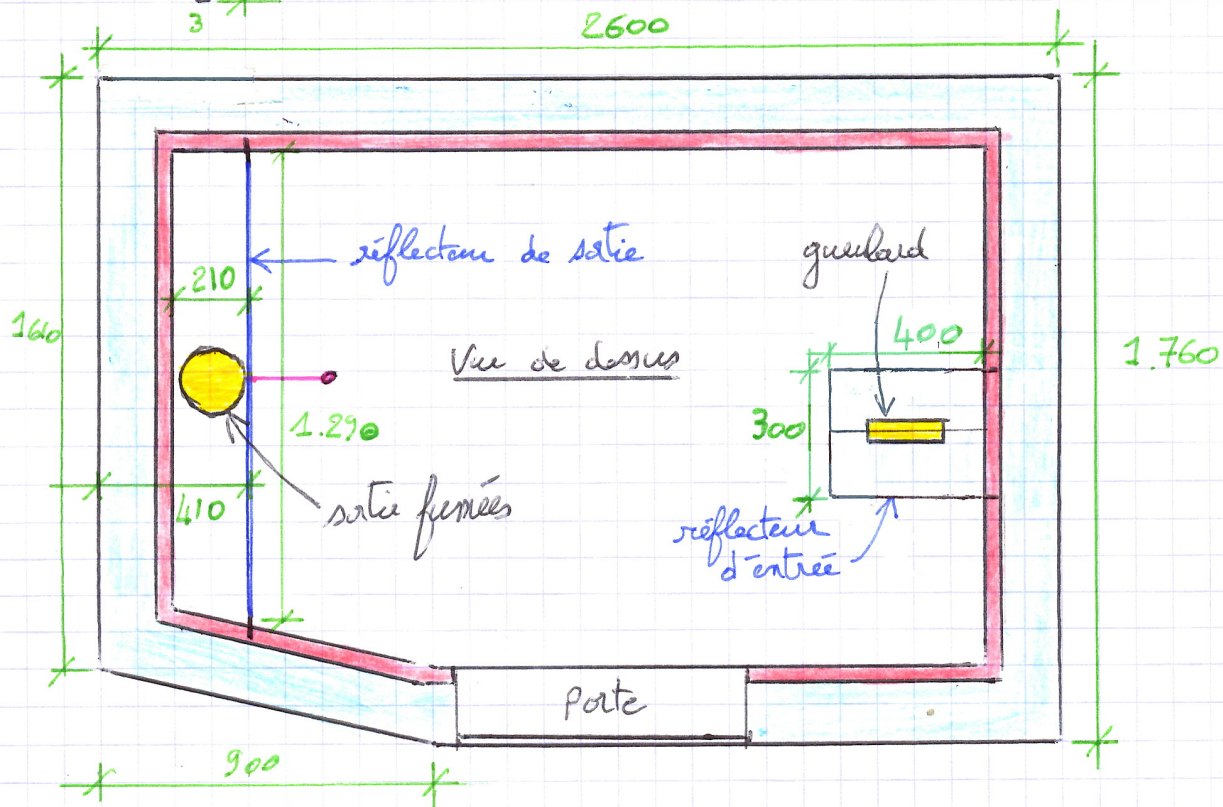 3
2600
réflecteur de sortie
gueulard
210
400
Vue de dessus
1.760
300
1.290
410
sortie fumées
réflecteur
d'entrée
Porte
900